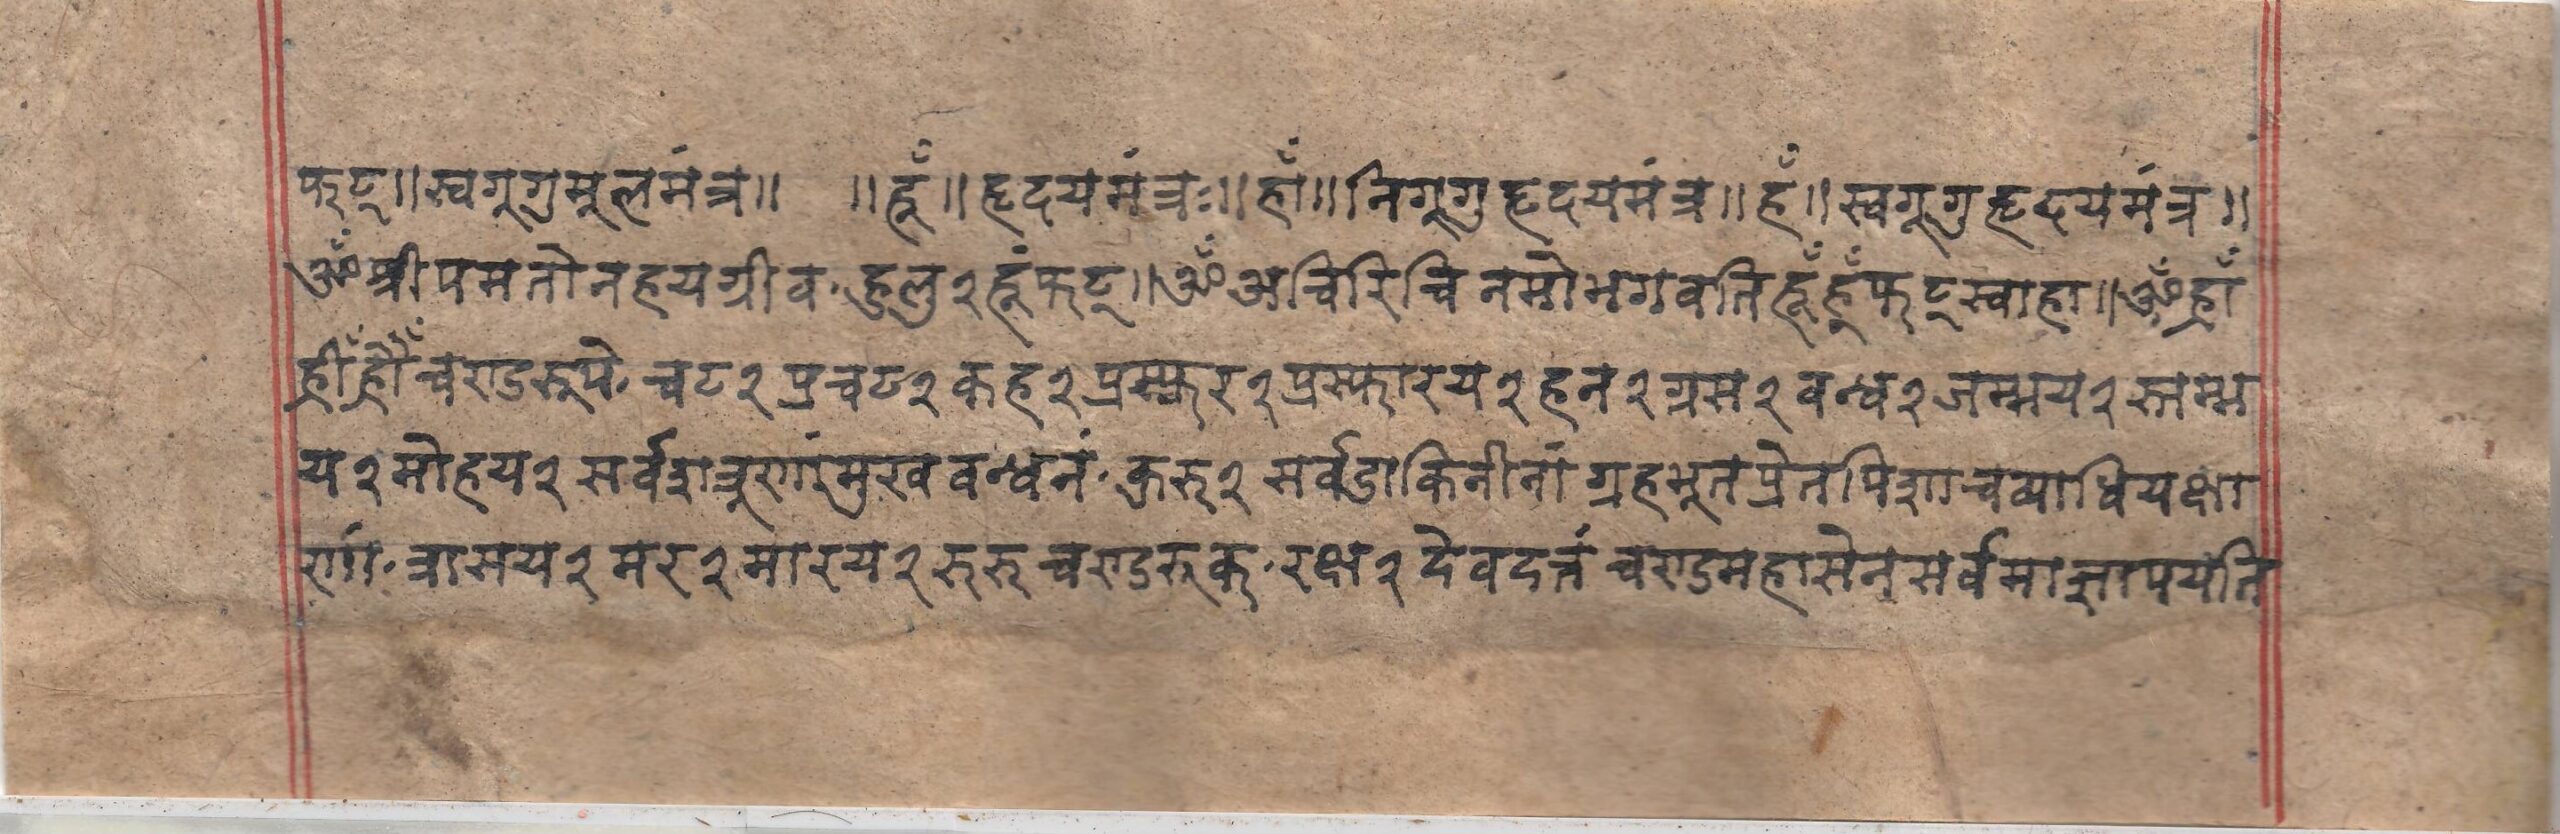 फट्॥ स्वगूगुमूलमंत्र॥ ॥हूँ॥ हृदयमंत्रः॥ हाँ॥ निगूगुहृदयमंत्र॥ हँ॥ स्वगूगुहृदयमंत्र॥
ॐ श्रीपमतोनहयग्रीव हुलु२ हूं फट्॥ ॐ अचिरिचि नमोभगवति हूँ हूँ फट् स्वाहा॥ ॐ ह्राँ
ह्रीँ ह्रौँ चण्डरूपे चट२ प्रचट२ कह२ प्रस्फुर२ प्रस्फारय२ हन२ ग्रस२ बन्ध२ जम्भय२ स्तम्भ
य२ मोहय२ सर्वशत्रूणां मुखबन्धनं कुरु२ सर्वडाकिनीनां ग्रहभूतप्रेतपिशाचव्याधियक्षा
णां त्रासय२ मर२ मारय२ रुरुचण्डरुक् रक्ष२ देवदत्तं चण्डमहासेन सर्वमाज्ञापयति